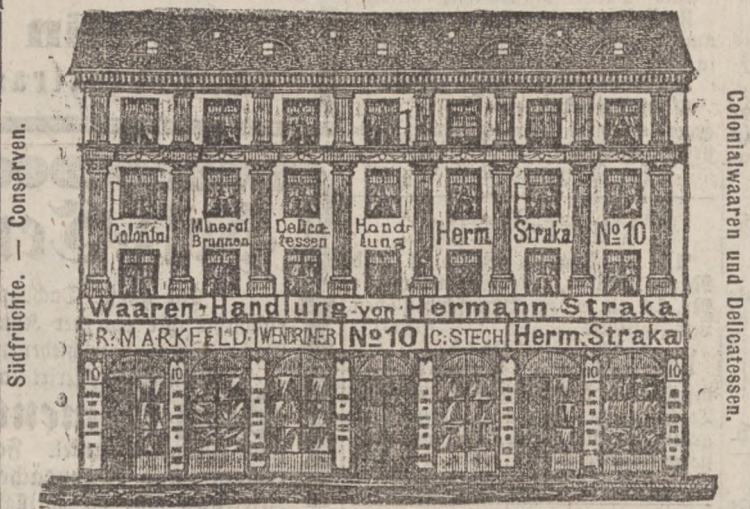 Südfrüchte. — Conserven.
Colonial
Mineral
Brunnen
Delica-
tessen
Hand-
lung
Herm.
Straka
No 10
Waaren-Handlung von Hermann Straka
R. MARKFELD
WENDRINER
No 10
C. STECH
Herm. Straka
10
10
10
10
10
Colonialwaaren und Delicatessen.